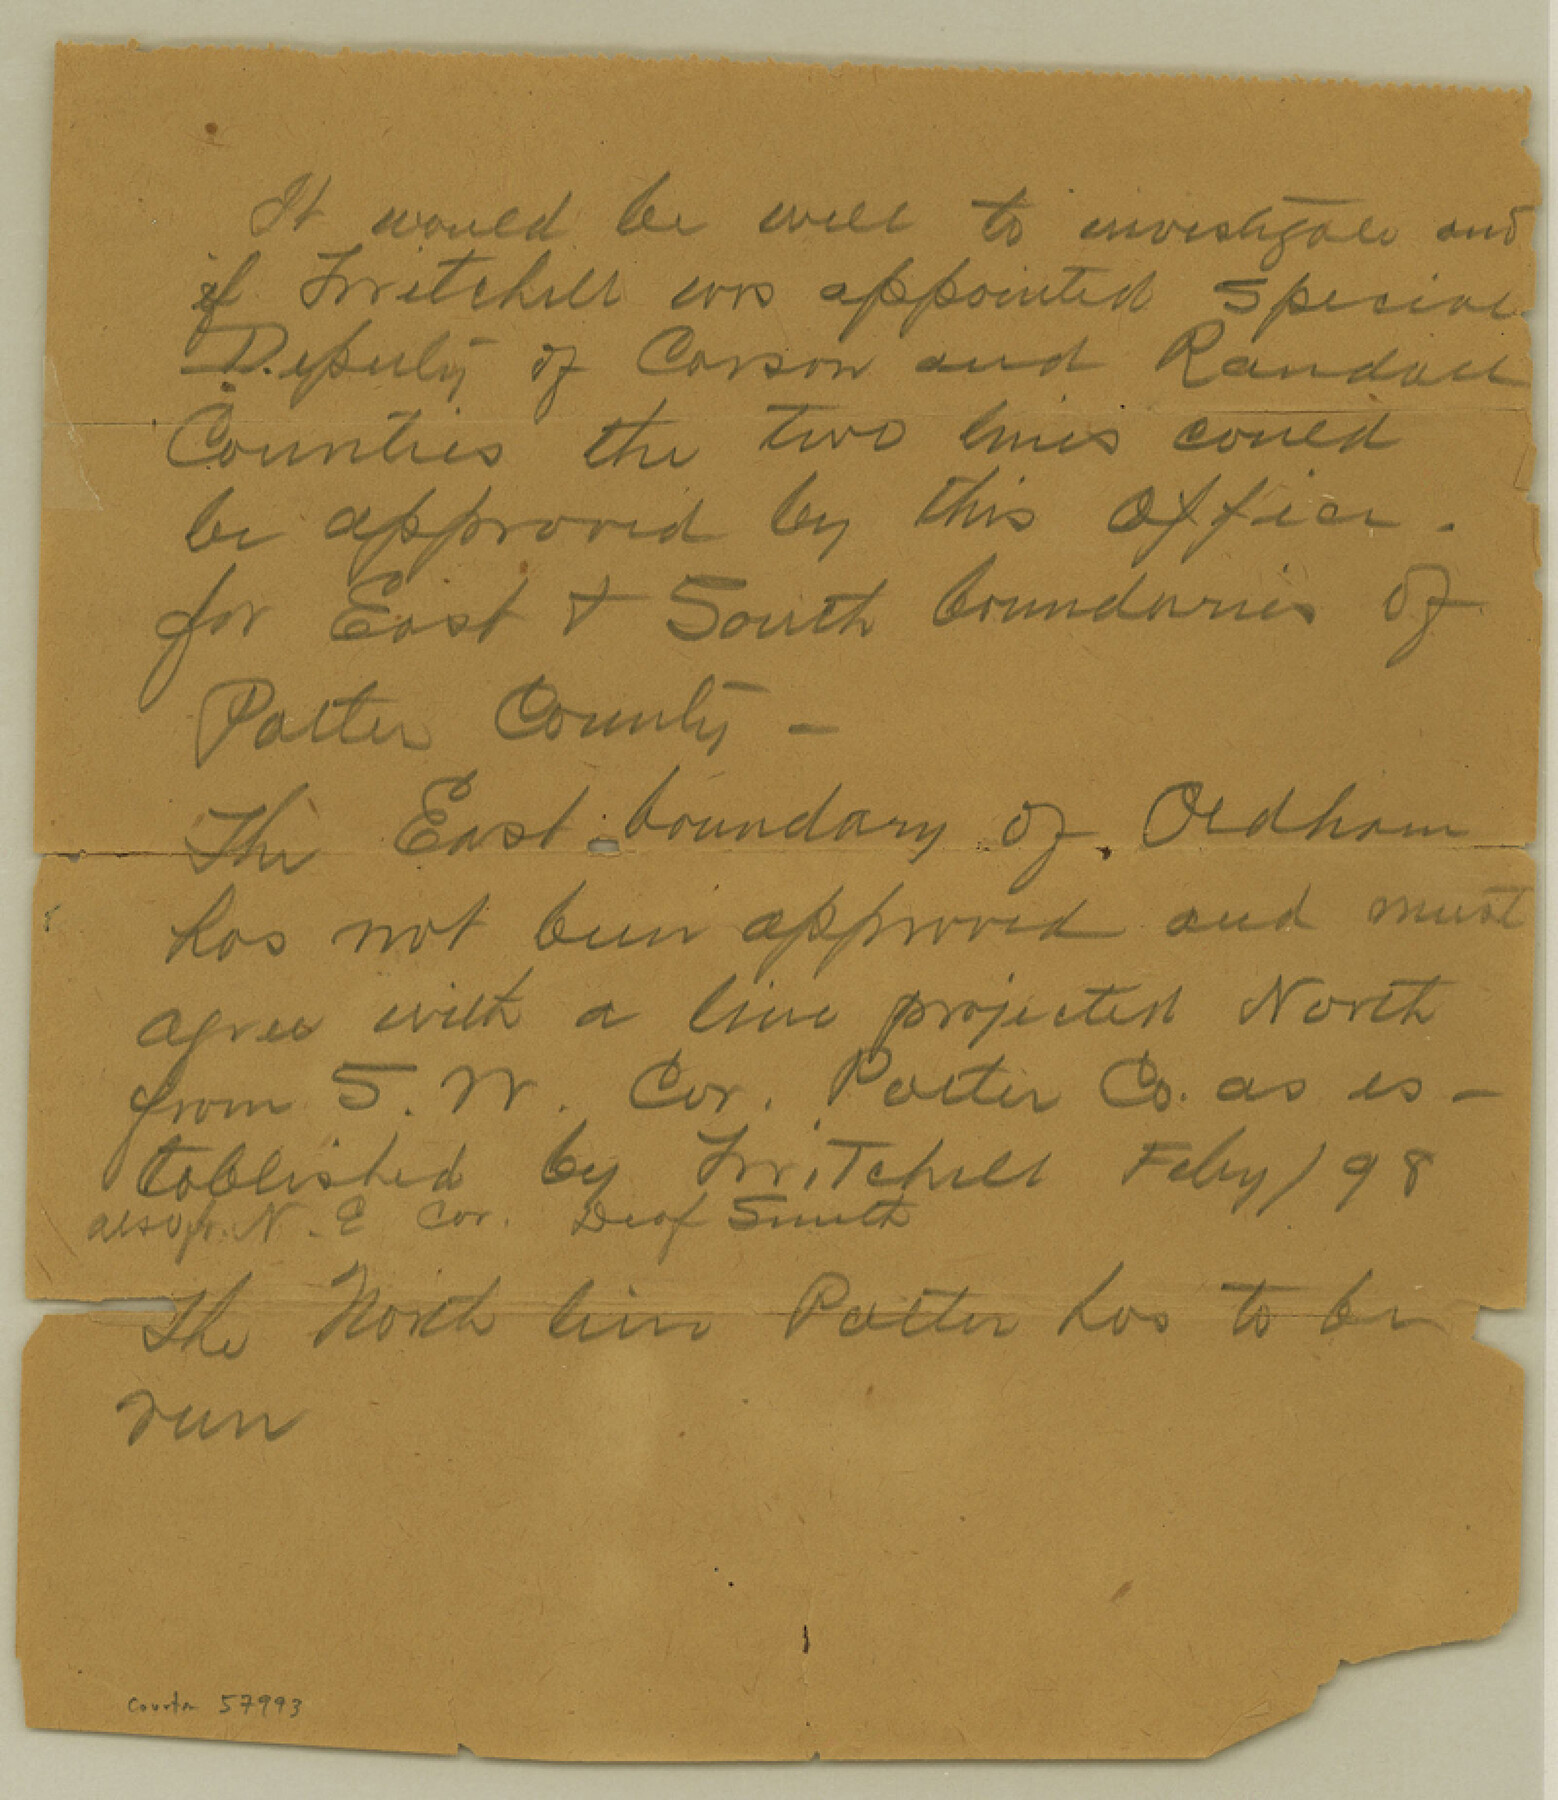 It would be well to investigate and
if Twitchell was appointed Special
Deputy of Carson and Randall
Counties the two lines could
be approved by this Office.
for East & South boundaries of
Potter County –
The East boundary of Oldham
has not been approved and must
agree with a line projected North
from S. W. Cor. Potter Co. as es-
tablished by Twitchell Feby/98
also fr. N. E Cor. Deaf Smith
The North line Potter has to be
run
Counter 57993